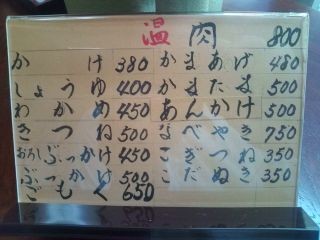 温 肉 800
かけ 380 かまあげ 480
しょうゆ 400 かまたま 500
わかめ 450 あんかけ 500
きつね 500 なべやき 750
おろしぶっかけ 450 こぎつね 350
ぶっかけ 500 こだぬき 350
ごもく 650